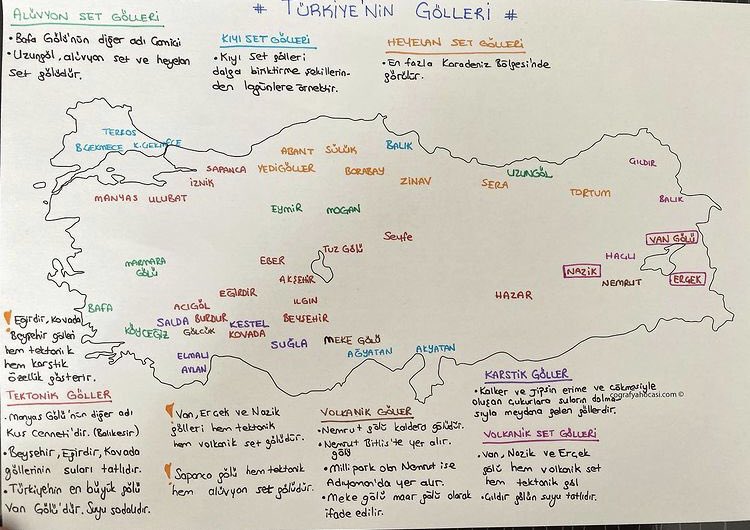 # TÜRKİYE'NİN GÖLLERİ #
ALÜVYON SET GÖLLERİ
• Bafa Gölü'nün diğer adı Çamiçi
• Uzungöl, alüvyon set ve heyelan
set gölüdür.
KIYI SET GÖLLERİ
• Kıyı set gölleri
dalga biriktirme şekillerin-
den lagünlere örnektir.
HEYELAN SET GÖLLERİ
• En fazla Karadeniz Bölgesi'nde
görülür.
TERKOS
B.ÇEKMECE K.ÇEKMECE
SAPANCA
İZNİK
MANYAS ULUBAT
ABANT SÜLÜK
YEDİGÖLLER
BORABAY
BALIK
ZİNAV
SERA
UZUNGÖL
TORTUM
ÇILDIR
BALIK
EYMİR MOGAN
TUZ GÖLÜ
Seyfe
VAN GÖLÜ
HAÇLI
NAZİK
NEMRUT
ERÇEK
HAZAR
MARMARA
GÖLÜ
EBER
AKŞEHİR
EĞİRDİR
ILGIN
BAFA
ACIGÖL
SALDA BURDUR
KÖYCEĞİZ
GÖLCÜK
KESTEL
KOVADA
BEYŞEHİR
SUĞLA
MEKE GÖLÜ
ELMALI
AVLAN
AĞYATAN
AKYATAN
! Eğirdir, Kovada,
Beyşehir gölleri
hem tektonik
hem karstik
özellik gösterir.
TEKTONİK GÖLLER
• Manyas Gölü'nün diğer adı
Kuş Cenneti'dir. (Balıkesir)
• Beyşehir, Eğirdir, Kovada
göllerinin suları tatlıdır.
• Türkiye'nin en büyük gölü
Van Gölü'dür. Suyu sodalıdır.
! Van, Erçek ve Nazik
gölleri hem tektonik
hem volkanik set gölüdür.
! Sapanca gölü hem tektonik
hem alüvyon set gölüdür.
VOLKANİK GÖLLER
• Nemrut gölü kaldera gölüdür.
• Nemrut Bitlis'te yer alır.
gölü
• Milli park olan Nemrut ise
Adıyaman'da yer alır.
• Meke gölü maar gölü olarak
ifade edilir.
KARSTİK GÖLLER
• Kalker ve jipsin erime ve çökmesiyle
oluşan çukurlara suların dolma-
sıyla meydana gelen göllerdir.
cografyahocasi.com ©
VOLKANİK SET GÖLLERİ
• Van, Nazik ve Erçek
gölü hem volkanik set
hem tektonik göl
• Çıldır gölün suyu tatlıdır.